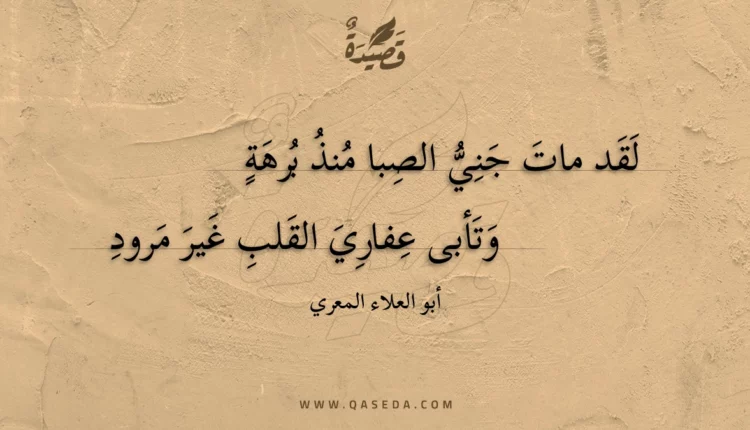 قَصِيدَةٌ
لَقَد ماتَ جَنِيُّ الصِبا مُنذُ بُرهَةٍ
وَتَأبى عِفارِيَ القَلبِ غَيرَ مَرودِ
أبو العلاء المعري
WWW.QASEDA.COM